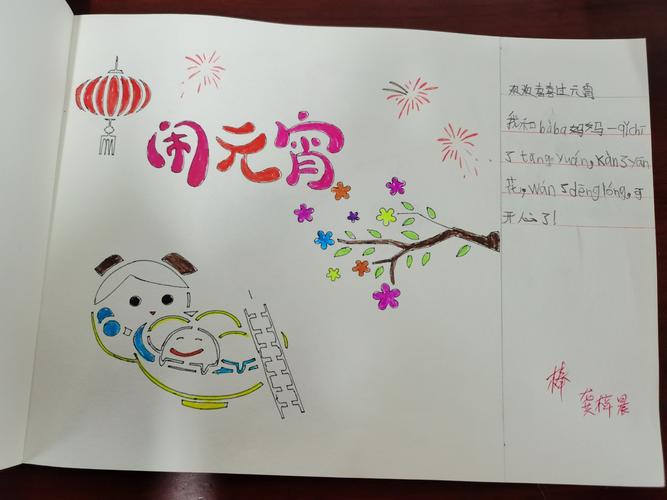 闹元宵
欢欢喜喜过元宵
我和bàba妈妈一qǐchī
了tāng yuán,kàn了yān
花,wán了dēng lóng,可
开心了!
棒
龚梓晨